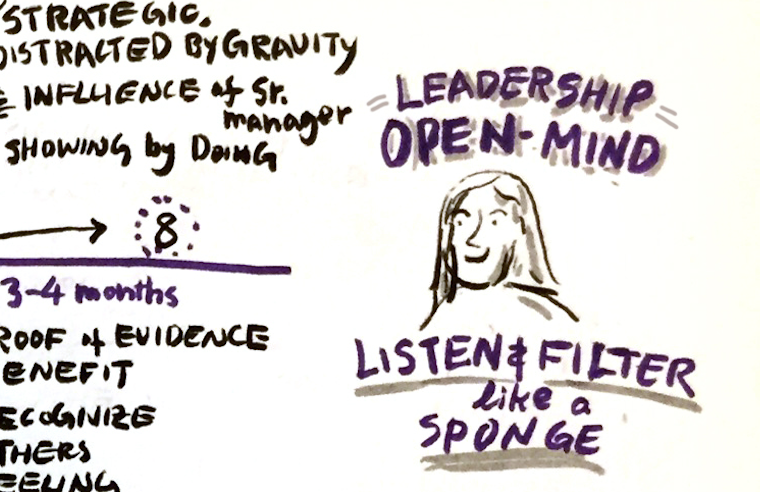 STRATEGIC.
DISTRACTED BY GRAVITY
INFLUENCE of Sr.
manager
SHOWING by DOING
8
3-4 months
ROOF of EVIDENCE
ENEFIT
ECOGNIZE
THERS
EELING
LEADERSHIP
OPEN-MIND
LISTEN & FILTER
like a
SPONGE